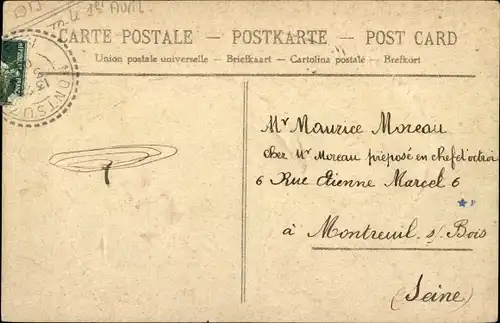 1er Avril
CARTE POSTALE — POSTKARTE — POST CARD
Union postale universelle — Briefkaart — Cartolina postale — Brefkort
MONTSU
Mr Maurice Moreau
chez Mr Moreau préposé en chef d'octroi
6 Rue Etienne Marcel 6
à Montreuil s/ Bois
(Seine)